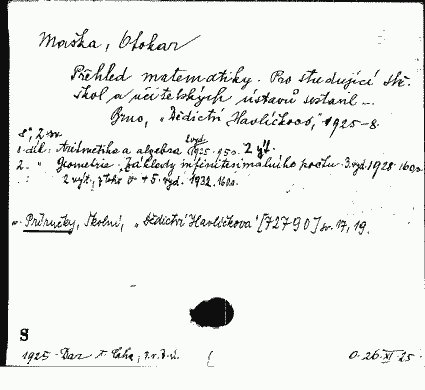 Maška, Otokar
Přehled matematiky. Pro studující stř.
škol a učitelských ústavů sestavil -.
Brno, "Dědictví Havlíčkovo", 1925-8.
8°, 2 sv.
1. díl: Aritmetika a algebra 2 výt.
2. " Geometrie. Základy infinitesimálního počtu. 3. vyd. 1928. 160 s.
: 2 výt., + 5. vyd. 1932. 160 s.
Příručky, školní, "Dědictví Havlíčkova" [72790] sv. 17, 19.
S
1925 Dar
0. 26. XI 25